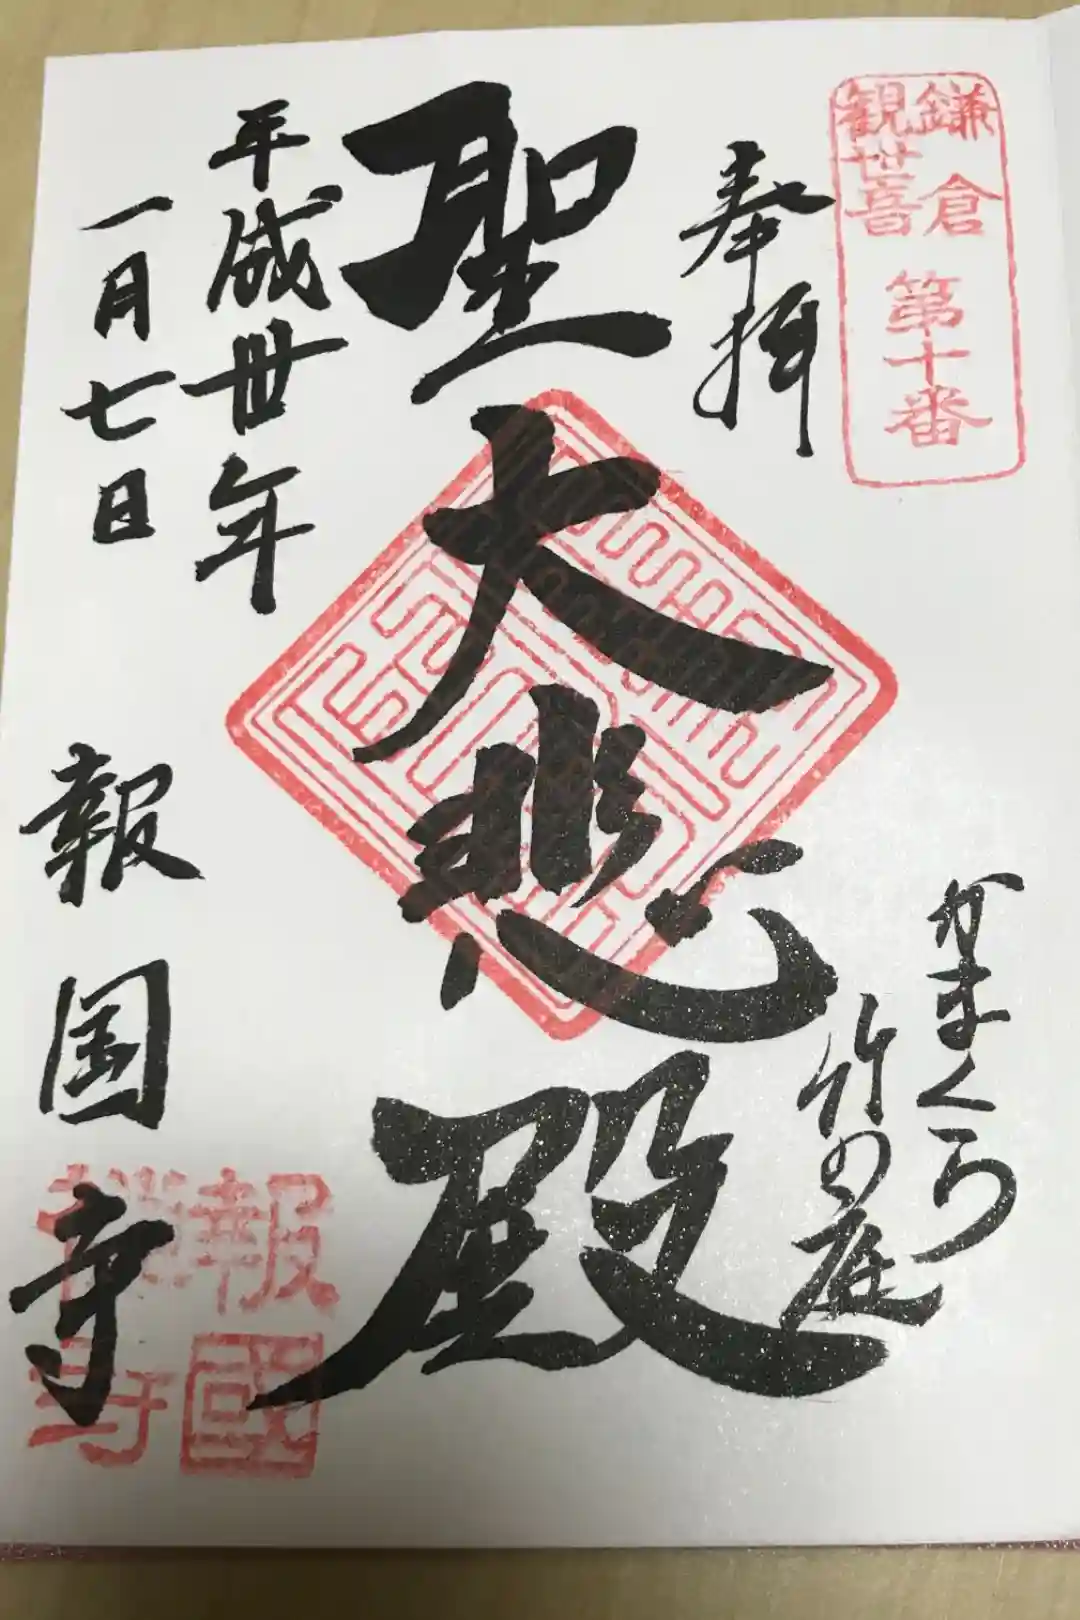 鎌倉
観世音
第十番
奉拝
かまくら
竹の庭
聖大悲殿
平成卅年
一月七日
報国寺
報國
禅寺